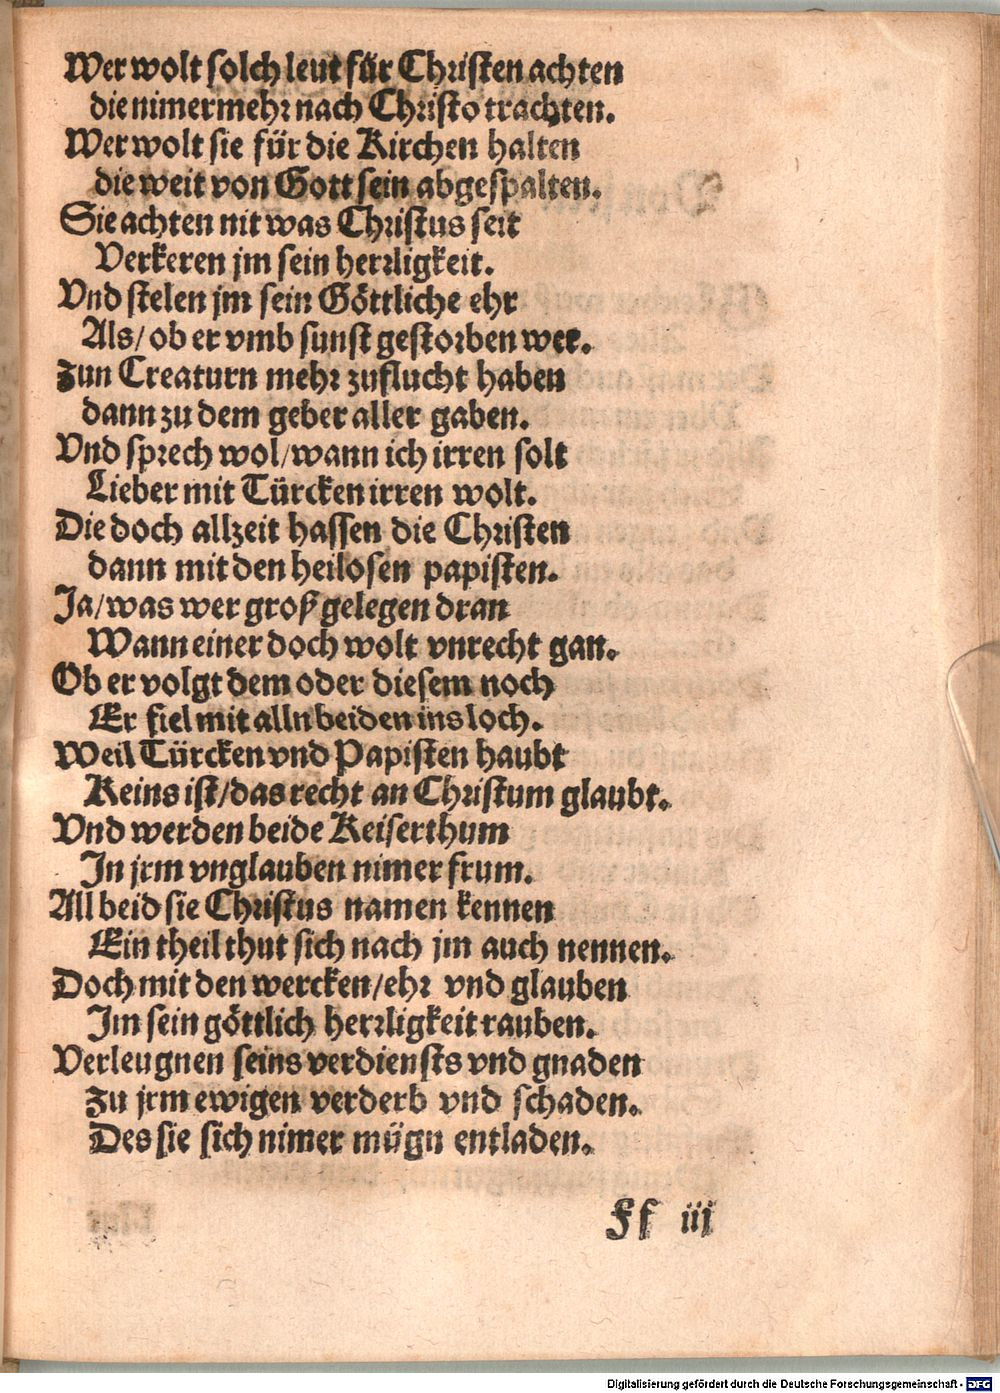 Wer wolt solch leut für Christen achten
die nimermehr nach Christo trachten.
Wer wolt sie für die Kirchen halten
die weit von Gott sein abgespalten.
Sie achten nit was Christus seit
Verkeren jm sein herrligkeit.
Vnd stelen jm sein Göttliche ehr
Als/ ob er vmb sunst gestorben wer.
Zun Creaturn mehr zuflucht haben
dann zu dem geber aller gaben.
Vnd sprech wol/wann ich irren solt
Lieber mit Türcken irren wolt.
Die doch allzeit hassen die Christen
dann mit den heilosen papisten.
Ja/was wer groß gelegen dran
Wann einer doch wolt vnrecht gan.
Ob er volgt dem oder diesem noch
Er fiel mit alln beiden ins loch.
Weil Türcken vnd Papisten haubt
Keins ist/das recht an Christum glaubt.
Vnd werden beide Keiserthum
In jrm vnglauben nimer frum.
All beid sie Christus namen kennen
Ein theil thut sich nach jm auch nennen.
Doch mit den wercken/ehr vnd glauben
Im sein göttlich herrligkeit rauben.
Verleugnen seins verdiensts vnd gnaden
Zu jrm ewigen verderb vnd schaden.
Des sie sich nimer mügn entladen.
Ff iij
Digitalisierung gefördert durch die Deutsche Forschungsgemeinschaft - DFG